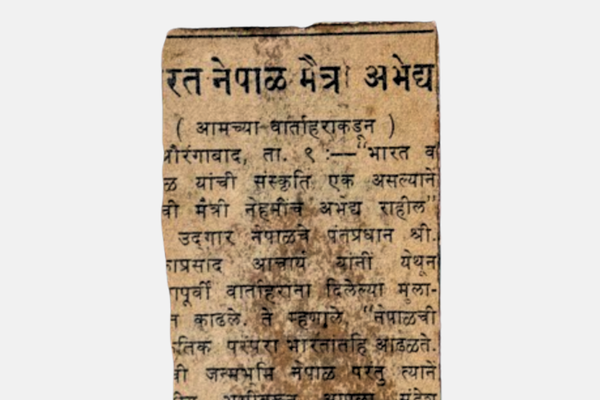 रत नेपाळ मैत्री अभेद्य
( आमच्या वार्ताहराकडून )
औरंगाबाद, ता. ९ :— "भारत व
ळ यांची संस्कृति एक असल्याने
ची मैत्री नेहमीच अभेद्य राहील"
उद्‌गार नेपाळचे पंतप्रधान श्री.
काप्रसाद आचार्य यांनी येथून
पूर्वी वार्ताहरांना दिलेल्या मुला-
त काढले. ते म्हणाले "नेपाळची
तिक परंपरा भारतातहि आढळते.
ची जन्मभूमि नेपाळ परंतु त्याने
आपला संदेश